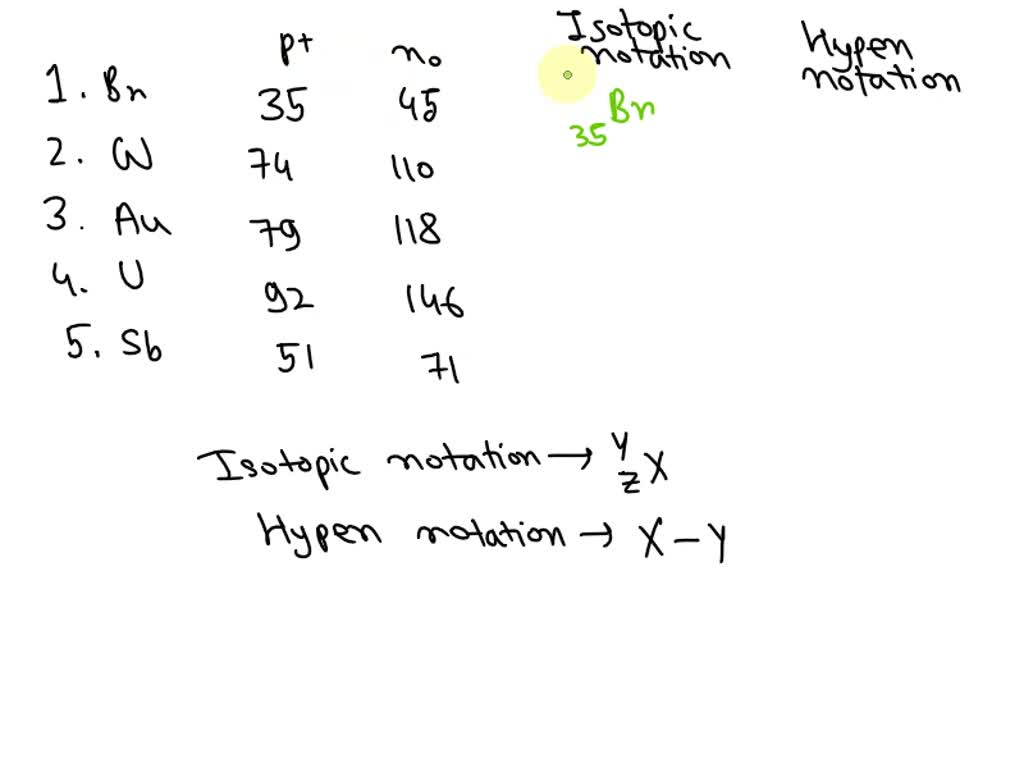 p+ n₀ Isotopic notation Hypen notation
1. Br 35 45 ₃₅Br
2. W 74 110
3. Au 79 118
4. U 92 146
5. Sb 51 71
Isotopic notation → ʸ_zX
Hypen notation → X – Y